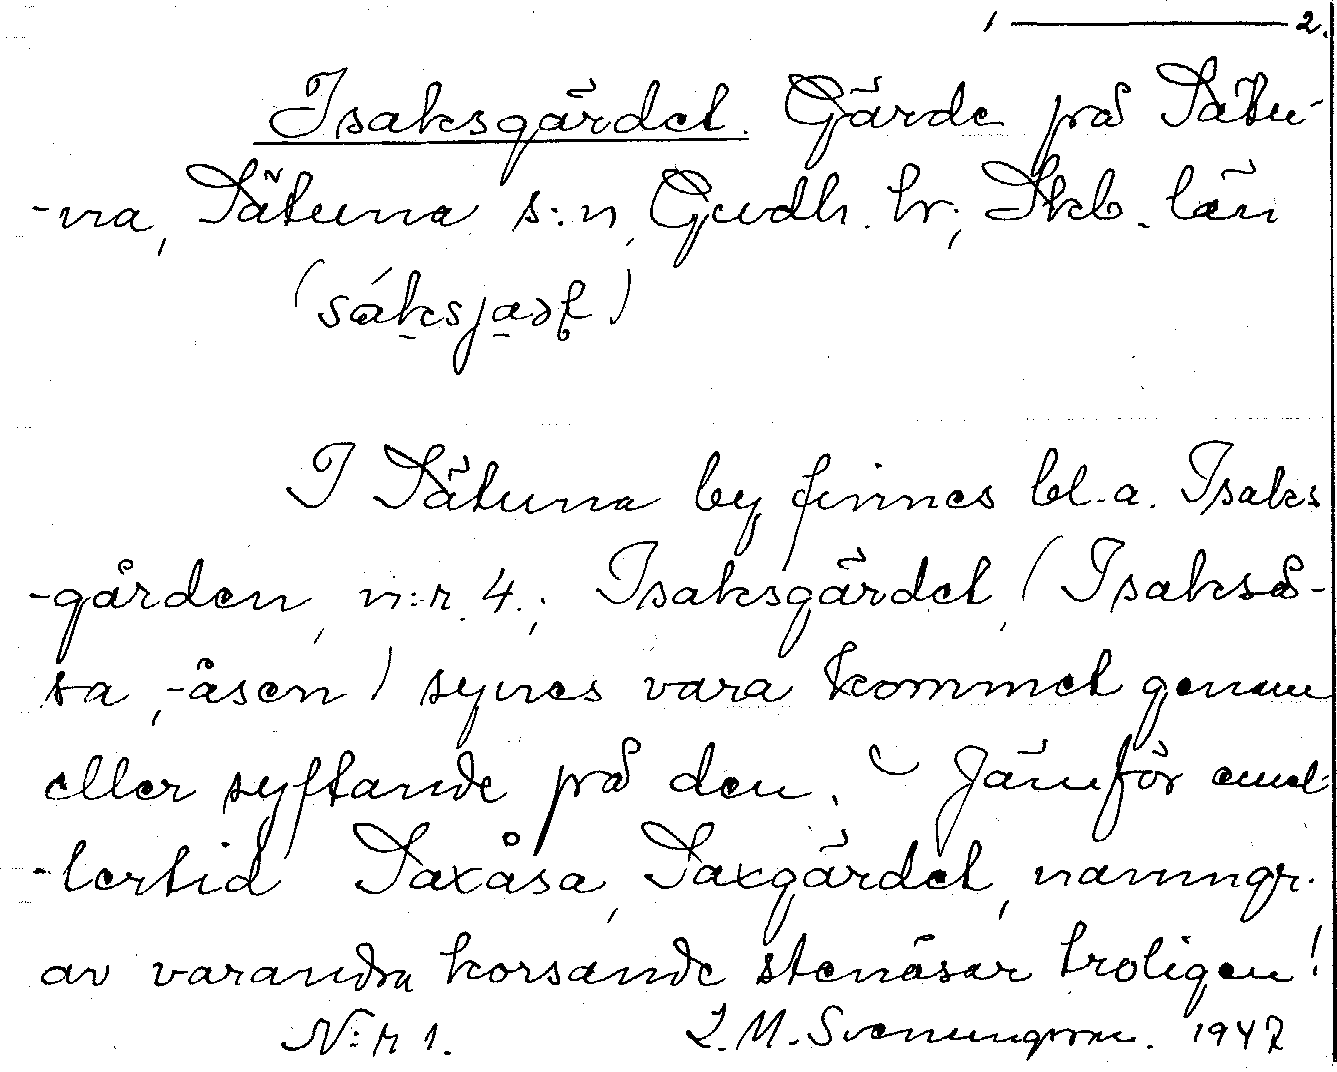 1 — 2.
Isaksgärdet. Gärde på Sätu-
-na, Sätuna s:n, Gudh. hr; Skb. län
(sáksjaḍe̥)
I Sätuna by finnes bl.a. Isaks
-gården, n:r 4.; Isaksgärdet, (Isakså-
sa, -åsen) synes vara kommet genom
eller syftande på den. – Jämför emel-
-lertid Saxåsa, Saxgärdet, namngr.
av varandra korsande stenåsar troligen!
N:r 1. L.M. Svenungsson. 1947